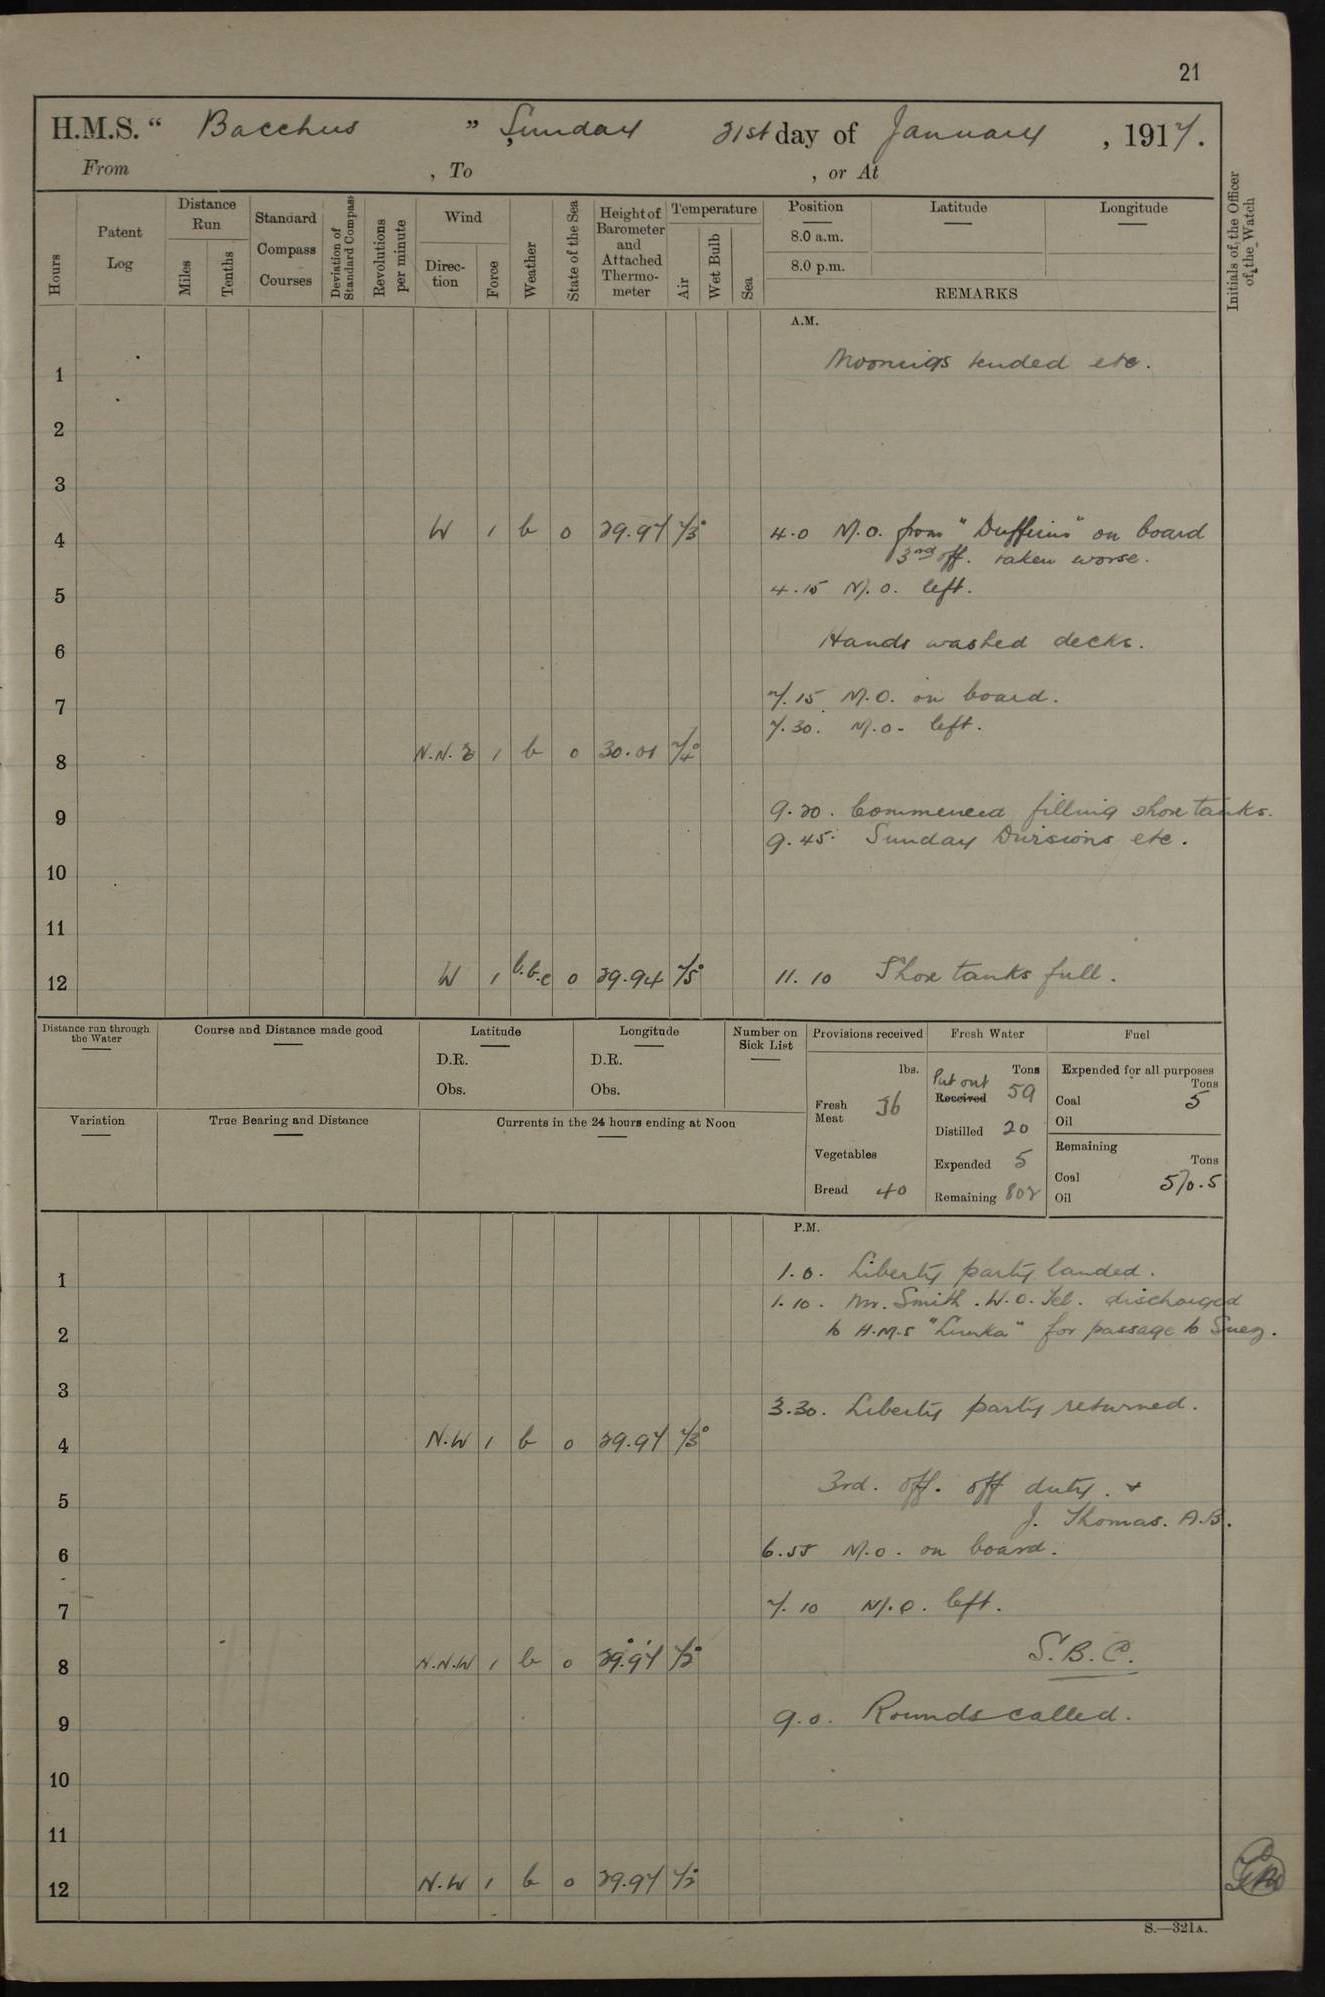 21
H.M.S. " Bacchus " Sunday 21st day of January , 1917.
From , To , or At
Hours
Patent Log
Distance Run
Miles
Tenths
Standard Compass Courses
Deviation of Standard Compass
Revolutions per minute
Wind
Direction
Force
Weather
State of the Sea
Height of Barometer and Attached Thermometer
Temperature
Air
Wet Bulb
Sea
Position
8.0 a.m.
8.0 p.m.
Latitude
Longitude
REMARKS
Initials of the Officer of the Watch
A.M.
1 Moorings tended etc.
2
3
4 W 1 b 0 29.97 73° 4.0 M.O. from "Dufferin" on board
3rd off. taken worse.
5 4.15 M.O. left.
6 Hands washed decks.
7 7.15 M.O. on board.
7.30. M.O. left.
8 N.N.E 1 b 0 30.01 74°
9 9.20. Commenced filling shore tanks.
9.45. Sunday Divisions etc.
10
11
12 W 1 b.b.c 0 29.94 75° 11.10 Shore tanks full.
Distance run through the Water
Course and Distance made good
Latitude
D.R.
Obs.
Longitude
D.R.
Obs.
Number on Sick List
Provisions received
lbs.
Fresh Meat 36
Vegetables
Bread 40
Fresh Water
Tons
Put out
Received 59
Distilled 20
Expended 5
Remaining 802
Fuel
Expended for all purposes
Tons
Coal 5
Oil
Remaining
Tons
Coal 570.5
Oil
Variation
True Bearing and Distance
Currents in the 24 hours ending at Noon
P.M.
1 1.0. Liberty party landed.
1.10. Mr. Smith. W.O. Tel. discharged
2 to H.M.S "Lunka" for passage to Suez.
3 3.30. Liberty party returned.
4 N.W 1 b 0 29.97 73°
5 3rd. off. off duty. +
J. Thomas. A.B.
6 6.55 M.O. on board.
7 7.10 M.O. left.
8 N.N.W 1 b 0 29.97 72° S.B.C.
9 9.0. Rounds called.
10
11
12 N.W 1 b 0 29.97 72°
S.—321A.